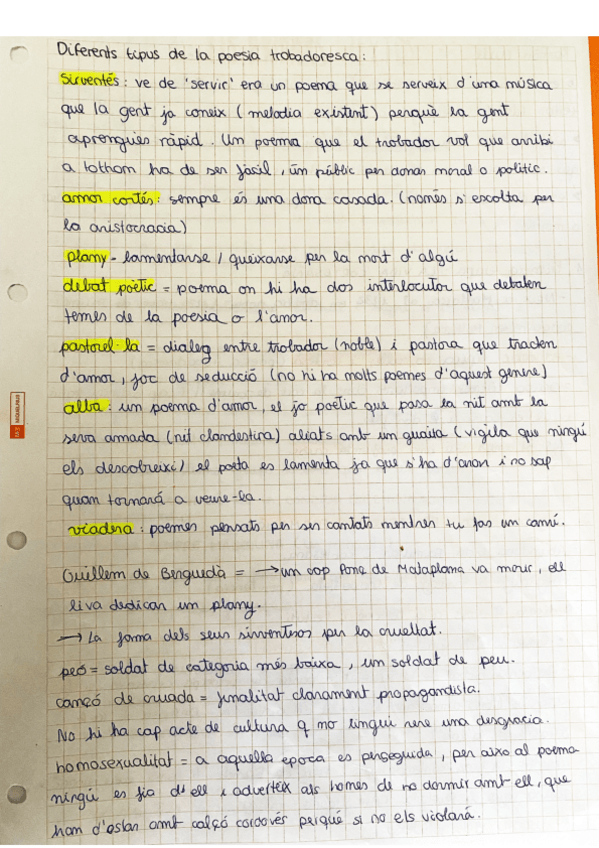 Diferents tipus de la poesia trobadoresca:
Sirventés: ve de 'servir' era un poema que se serveix d'una música
que la gent ja coneix (melodia existent) perquè la gent
aprengués ràpid. Un poema que el trobador vol que arribi
a tothom ha de ser fàcil, un públic per donar moral o politic.
amor cortés: sempre és una dona casada. (només s'escolta per
la aristocracia)
plany - lamentarse / queixarse per la mort d'algú
debat poètic = poema on hi ha dos interlocutor que debaten
temes de la poesia o l'amor.
pastorel·la = dialeg entre trobador (noble) i pastora que tracten
d'amor, joc de seducció (no hi ha molts poemes d'aquest genere)
alba: un poema d'amor, el jo poetic que pasa la nit amb la
seva amada (nit clandestina) aliats amb un guaita (vigila que ningú
els descobreixi) el poeta es lamenta ja que s'ha d'anar i no sap
quan tornará a veure-la.
viadera: poemes pensats per ser cantats mentres tu fas un camí.
Guillem de Berguedà = → un cop Ponç de Mataplana va morir, ell
li va dedicar un plany.
→ La fama dels seus sirventesos per la crueltat.
peó = soldat de categoria més baixa, un soldat de peu.
cançó de cruada = finalitat clarament propagandista.
No hi ha cap acte de cultura q no tingui rere una desgracia.
homosexualitat = a aquella epoca es perseguida, per aixo al poema
ningú es fia d'ell i adverteix als homes de no dormir amt ell, que
han d'estar amt calçó cordovés perquè si no els violarà.